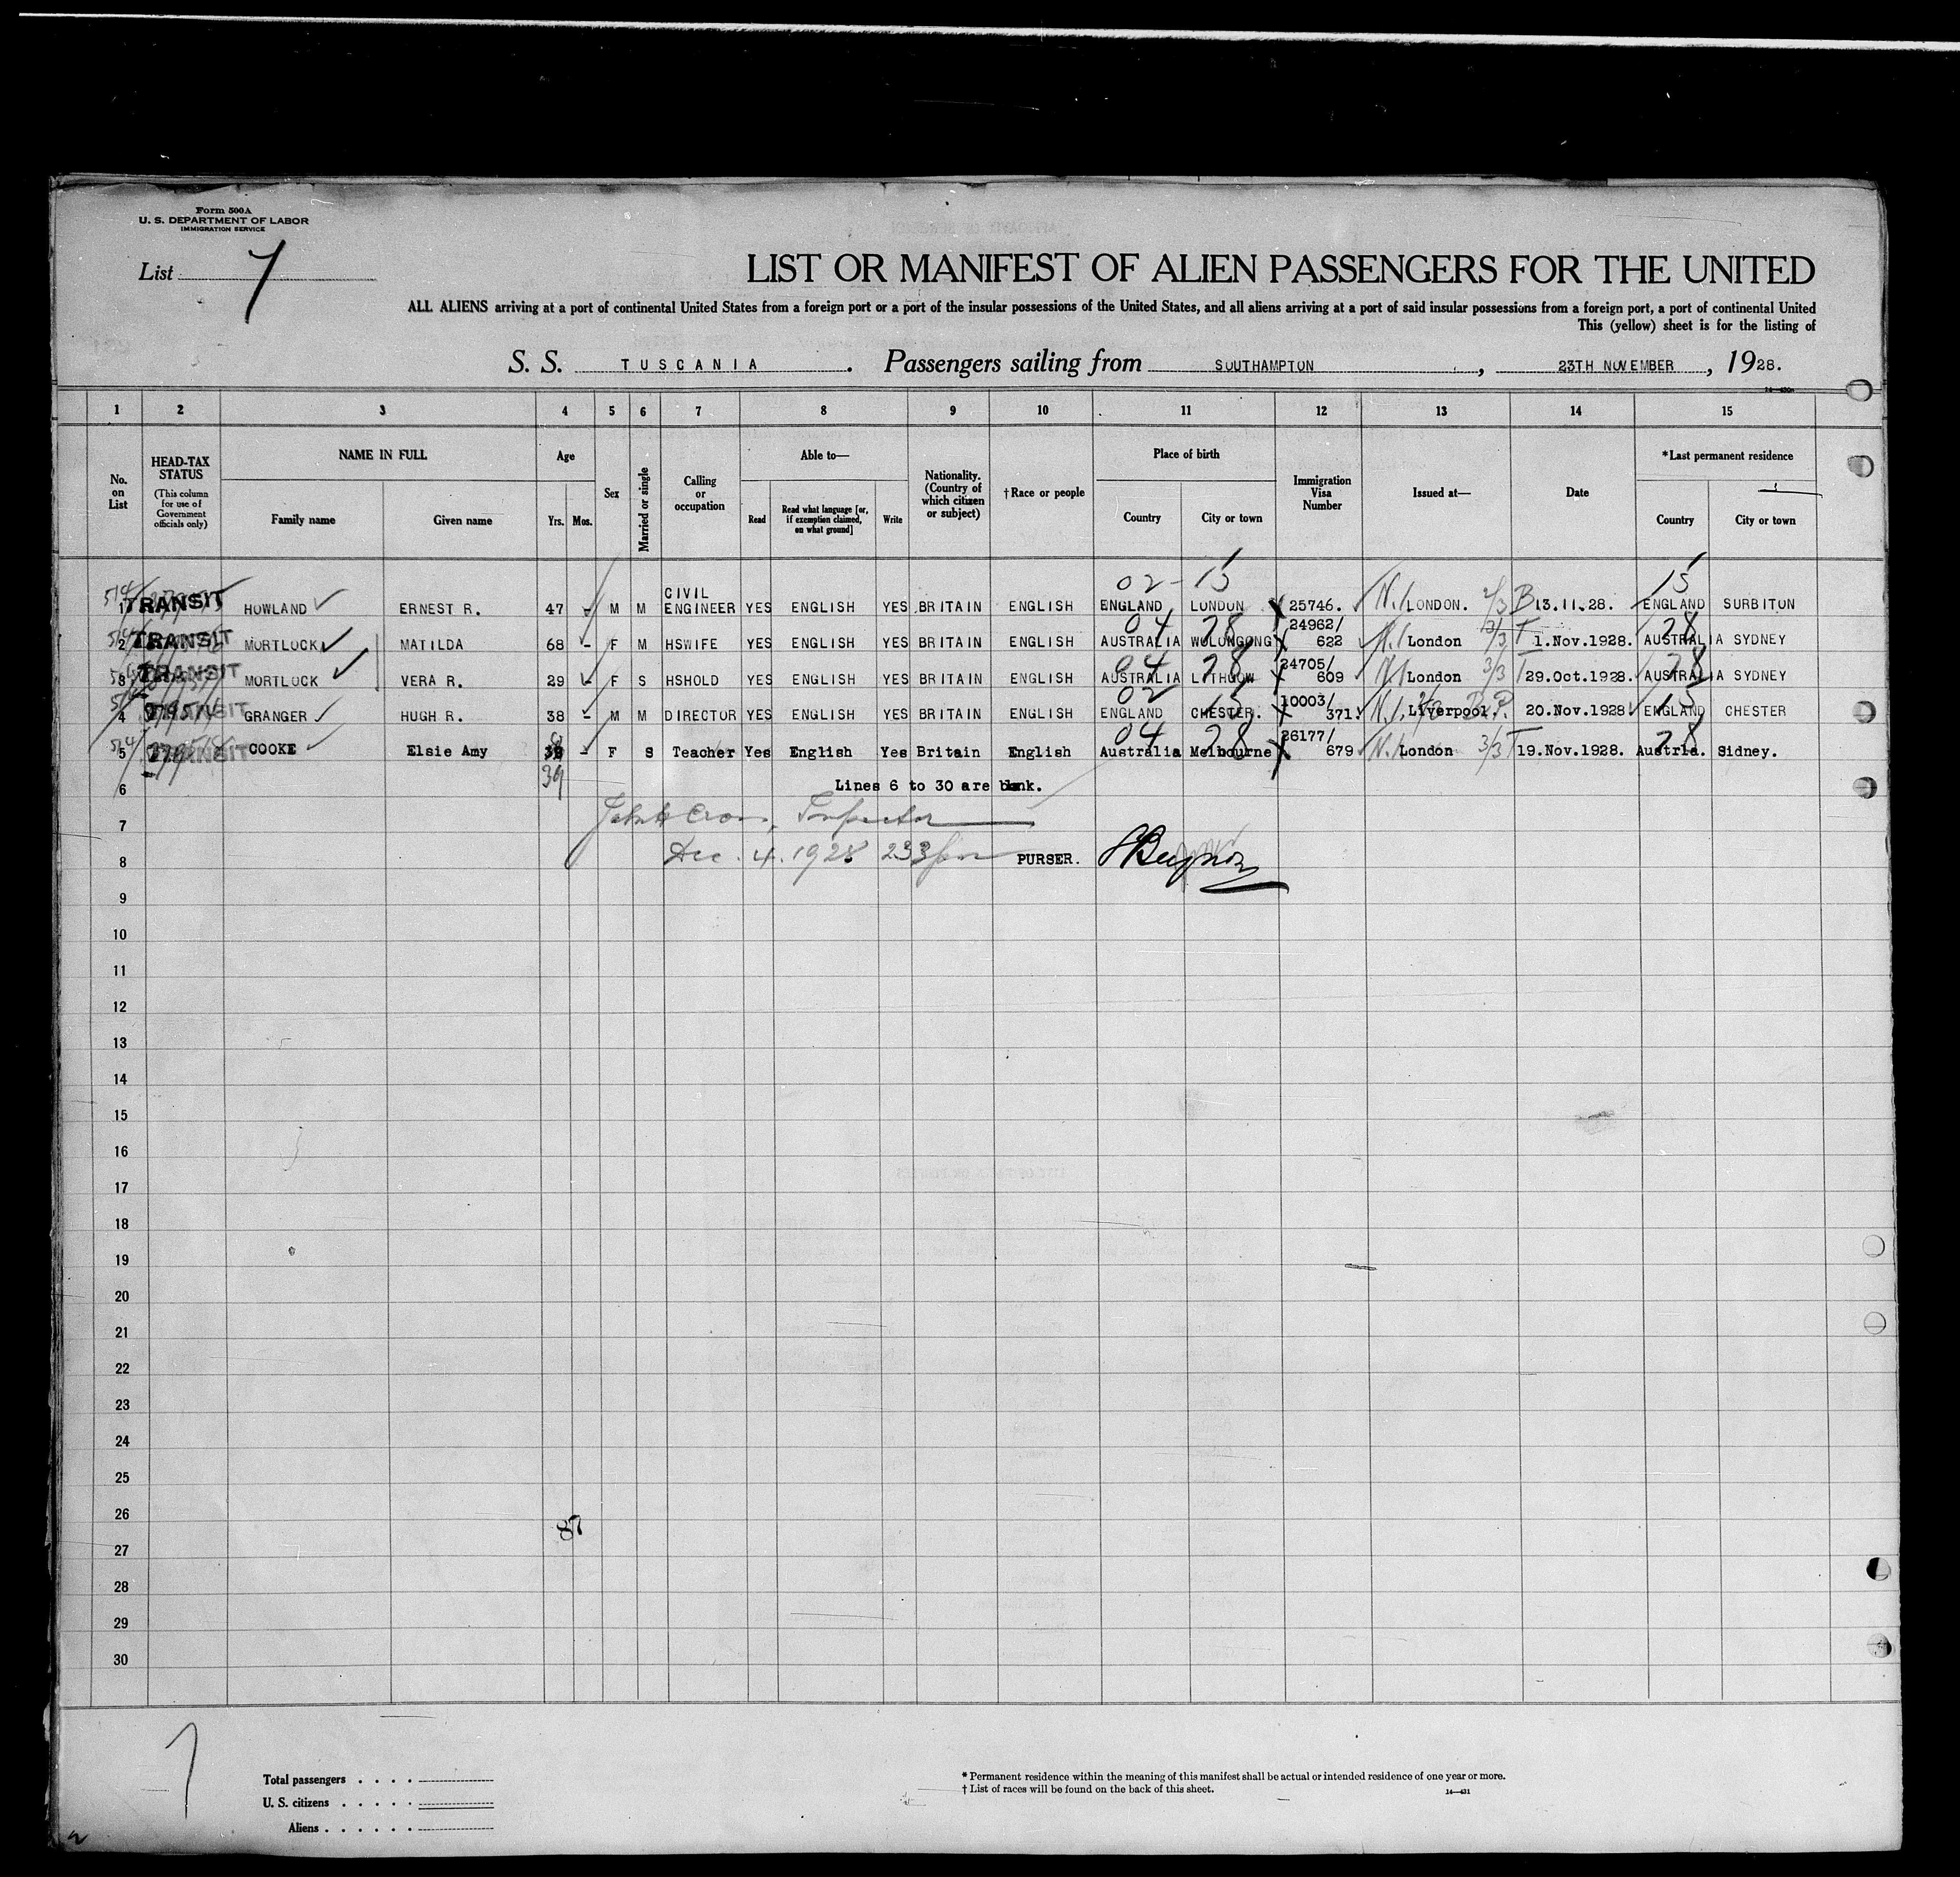 Form 500A
U. S. DEPARTMENT OF LABOR
IMMIGRATION SERVICE
List 7
LIST OR MANIFEST OF ALIEN PASSENGERS FOR THE UNITED
ALL ALIENS arriving at a port of continental United States from a foreign port or a port of the insular possessions of the United States, and all aliens arriving at a port of said insular possessions from a foreign port, a port of continental United
This (yellow) sheet is for the listing of
S. S. TUSCANIA. Passengers sailing from SOUTHAMPTON, 23TH NOVEMBER, 1928.
1 2 3 4 5 6 7 8 9 10 11 12 13 14 15
No. on List
HEAD-TAX STATUS
(This column for use of Government officials only)
NAME IN FULL
Family name
Given name
Age
Yrs. Mos.
Sex
Married or single
Calling or occupation
Able to—
Read
Read what language [or, if exemption claimed, on what ground]
Write
Nationality. (Country of which citizen or subject)
†Race or people
Place of birth
Country
City or town
Immigration Visa Number
Issued at—
Date
*Last permanent residence
Country
City or town
02 - 15 15
1 TRANSIT HOWLAND ERNEST R. 47 - M M CIVIL ENGINEER YES ENGLISH YES BRITAIN ENGLISH ENGLAND LONDON 25746. LONDON. 13.11.28. ENGLAND SURBITON
04 28 28
2 TRANSIT MORTLOCK MATILDA 68 - F M HSWIFE YES ENGLISH YES BRITAIN ENGLISH AUSTRALIA WOLONGONG 24962/ 622 London 1.Nov.1928. AUSTRALIA SYDNEY
04 28 28
3 TRANSIT MORTLOCK VERA R. 29 - F S HSHOLD YES ENGLISH YES BRITAIN ENGLISH AUSTRALIA LITHGOW 24705/ 609 London 29.Oct.1928. AUSTRALIA SYDNEY
02 15 15
4 TRANSIT GRANGER HUGH R. 38 - M M DIRECTOR YES ENGLISH YES BRITAIN ENGLISH ENGLAND CHESTER. 10003/ 371. Liverpool. 20.Nov.1928 ENGLAND CHESTER
04 28 28
5 TRANSIT COOKE Elsie Amy 39 - F S Teacher Yes English Yes Britain English Australia Melbourne 26177/ 679 London 19.Nov.1928. Austrla. Sidney.
6 Lines 6 to 30 are
7 Inspector
8 Dec. 4. 1928 PURSER.
9
10
11
12
13
14
15
16
17
18
19
20
21
22
23
24
25
26
27
28
29
30
7
Total passengers . . . .
U. S. citizens . . . . .
Aliens . . . . . .
* Permanent residence within the meaning of this manifest shall be actual or intended residence of one year or more.
† List of races will be found on the back of this sheet.
14—431